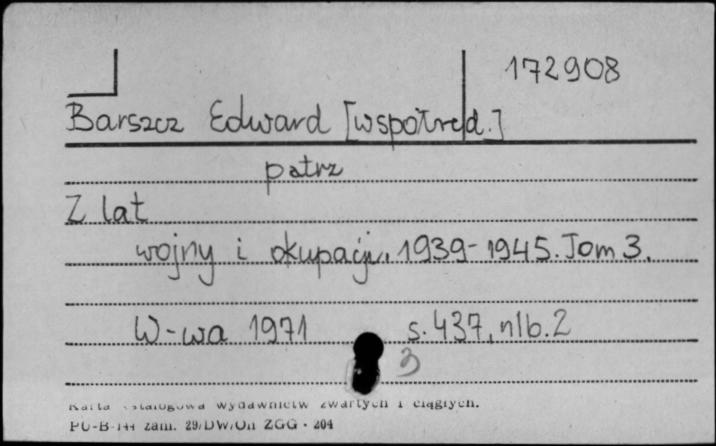 172908
Barszcz Edward [współred.]
patrz
Z lat
wojny i okupacji. 1939-1945. Tom 3.
W-wa 1971 s. 437, nlb. 2
3
Karta katalogowa wydawnictw zwartych i ciągłych.
PU-B-144 zam. 29/DW/On ZGG - 204